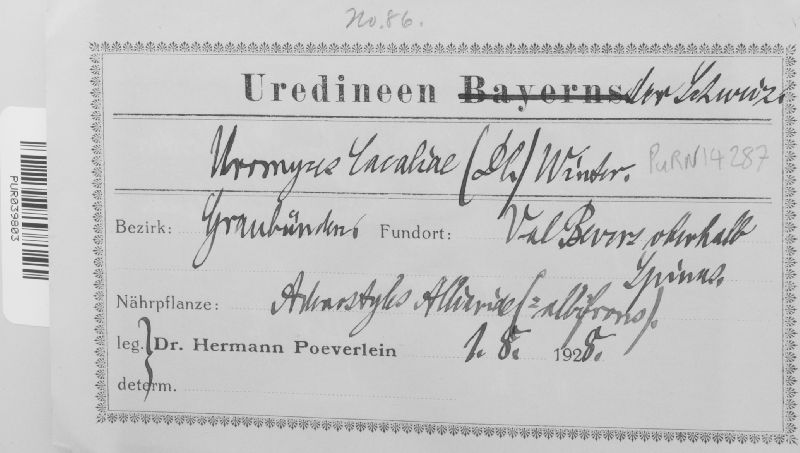 No. 86.
Uredineen Bayerns der Schweiz.
Uromyces Cacaliae (DC) Winter. PURN14287
PUR039803
Bezirk: Graubünden. Fundort: Val Bevers oberhalb
Spinas.
Nährpflanze: Adenostyles Alliariae (= albifrons).
leg. Dr. Hermann Poeverlein 1. 8. 1928.
determ.